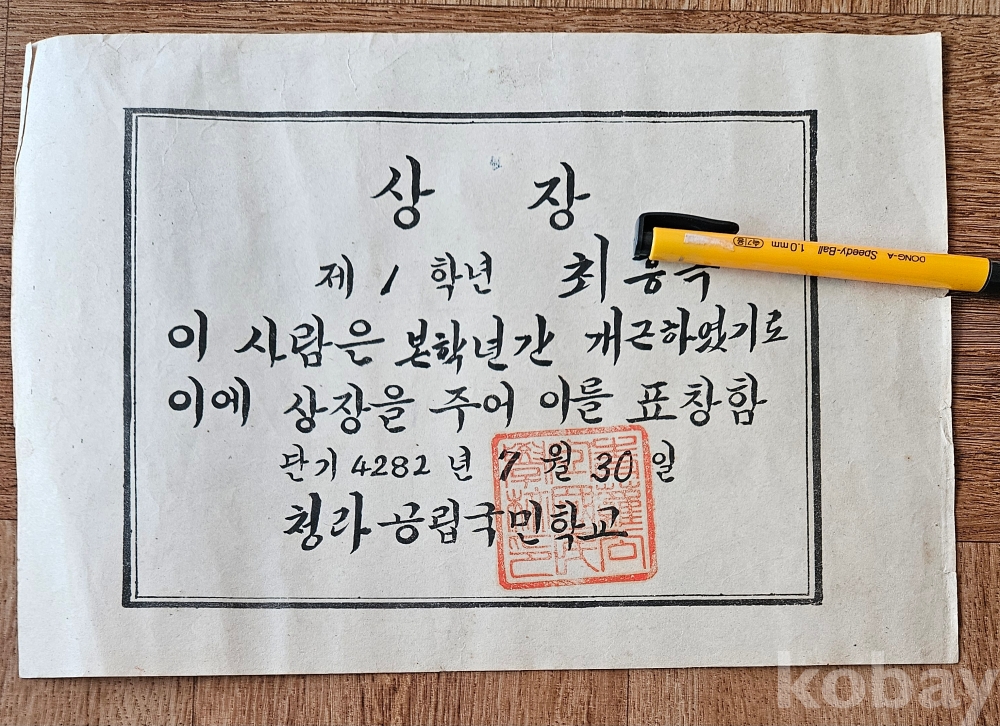 상 장
제 1 학년 최
이 사람은 본학년간 개근하였기로
이에 상장을 주어 이를 표창함
단기 4282 년 7 월 30 일
청라 공립국민학교
DONG-A Speedy-Ball 1.0mm 속기용
kobay